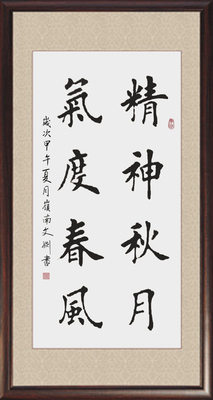 精神秋月
氣度春風
歲次甲午夏月嶺南文剛書